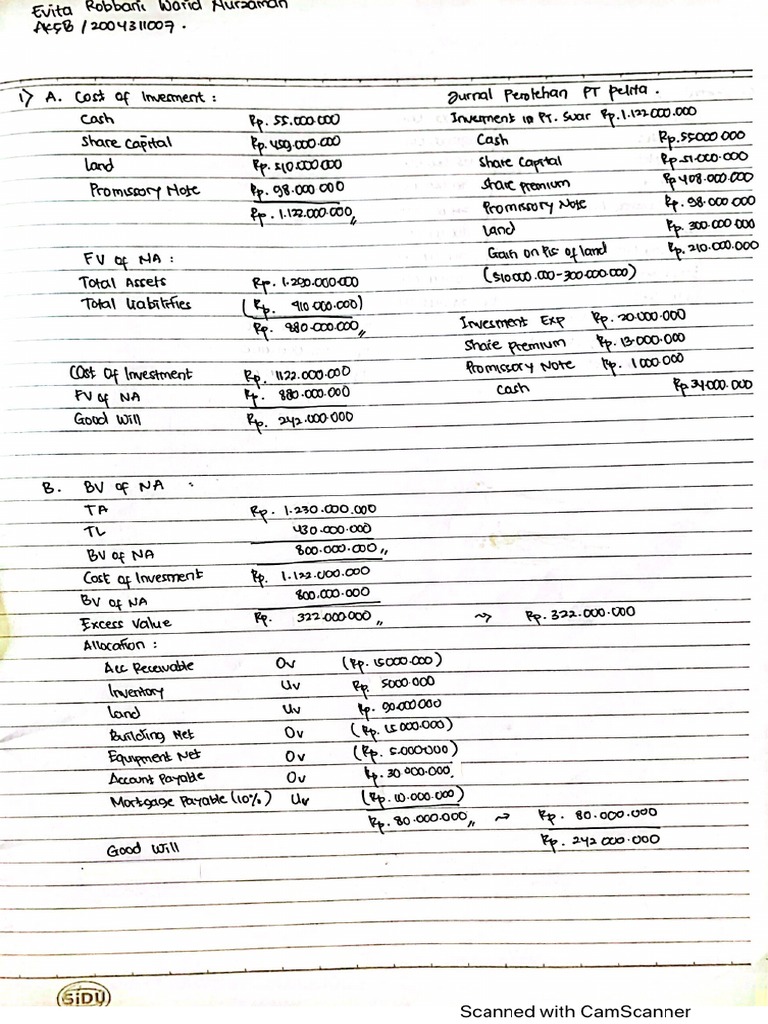 Evita Robbani Warid Nurzaman
AKSB / 2004311007.
1) A. Cost of Invesment :
Cash Rp. 55.000.000
Share Capital Rp. 459.000.000
Land Rp. 510.000.000
Promissory Note Rp. 98.000.000
Rp. 1.122.000.000
FV of NA :
Total Assets Rp. 1.290.000.000
Total Liabilities (Rp. 410.000.000)
Rp. 880.000.000
Cost Of Investment Rp. 1122.000.000
FV of NA Rp. 880.000.000
Good Will Rp. 242.000.000
Jurnal Perolehan PT Pelita.
Invesment in PT. Suar Rp. 1.122.000.000
Cash Rp. 55000 000
Share Capital Rp. 51.000.000
Share premium Rp 408.000.000
Promissory Note Rp. 98.000.000
Land Rp. 300.000.000
Gain on Dis of land Rp. 210.000.000
(510000.000-300.000.000)
Invesment Exp Rp. 20.000.000
Share Premium Rp. 13.000.000
Promissory Note Rp. 1 000.000
Cash Rp 34000.000
B. BV of NA :
TA Rp. 1.230.000.000
TL 430.000.000
BV of NA 800.000.000
Cost of Invesment Rp. 1.122.000.000
BV of NA 800.000.000
Excess Value Rp. 322.000.000 ~> Rp. 322.000.000
Allocation :
Acc Receivable Ov (Rp. 15000.000)
Inventory Uv Rp. 5000.000
Land Uv Rp. 90.000.000
Building Net Ov (Rp. 15 000.000)
Equipment Net Ov (Rp. 5.000.000)
Account Payable Ov Rp. 30.000.000.
Mortgage Payable (10%) Uv (Rp. 10.000.000)
Rp. 80.000.000 ~> Rp. 80.000.000
Good Will Rp. 242 000.000
SiDU
Scanned with CamScanner